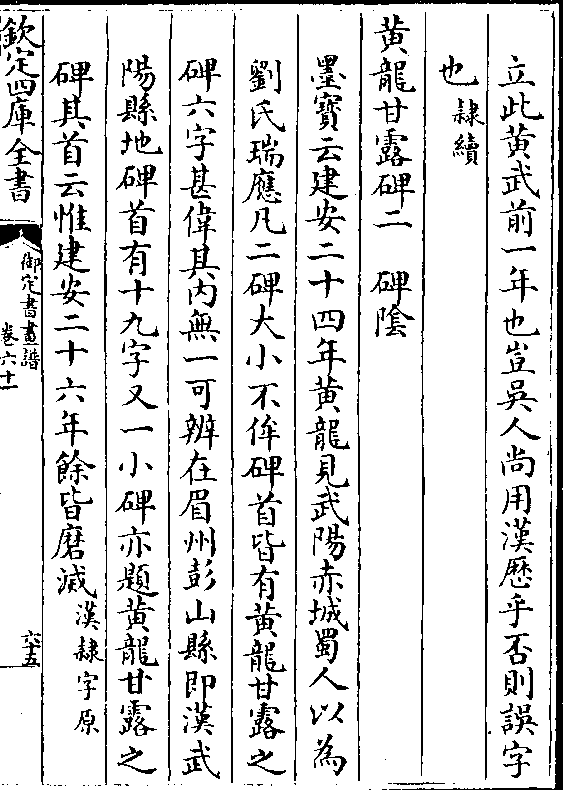 立此黄武前一年也豈吳人尚用漢歴乎否則誤字
也隷續
黄龍甘露碑二　碑陰
墨寳云建安二十四年黄龍見武陽赤城蜀人以為
劉氏瑞應凡二碑大小不侔碑首皆有黄龍甘露之
碑六字甚偉其内無一可辨在眉州彭山縣即漢武
陽縣地碑首有十九字又一小碑亦題黄龍甘露之
碑其首云惟建安二十六年餘皆磨滅漢隷字原
欽定四庫全書
御定書畫譜
卷六十一
六十五